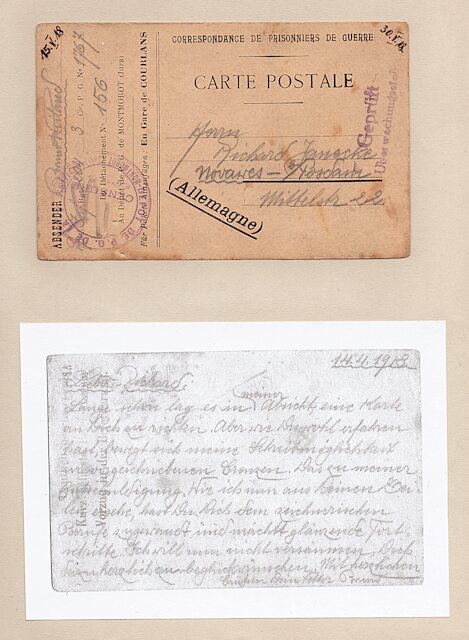 15.V.18
30.V.18.
CORRESPONDANCE DE PRISONNIERS DE GUERRE
CARTE POSTALE
Herrn
Richard
Nowawes – Potsdam
Mittelstr 22
(Allemagne)
Geprüft
Überwachungsstelle
ABSENDER
3 Cie P. G. N° 1767
Du Détachement N° 156
Au Dépôt de P. G. de MONTMOROT (Jura)
En Gare de COURLANS
14.4.1918
Lieber Richard,
Lange schon lag es in meiner Absicht, eine Karte
an Dich zu richten. Aber wie Du wohl erfahren
hast, bewegt sich meine Schreibmöglichkeit
in vorgeschriebenen Grenzen. Das zu meiner
Entschuldigung. Wie ich nun aus Deinen Zei-
len ersehe, hast Du Dich dem zeichnerischen
Berufe zugewandt und machst glänzende Fort-
schritte. Ich will nun nicht versäumen, Dich
herzlich zu beglückwünschen. Mit herzlichen
Grüßen Dein Vetter